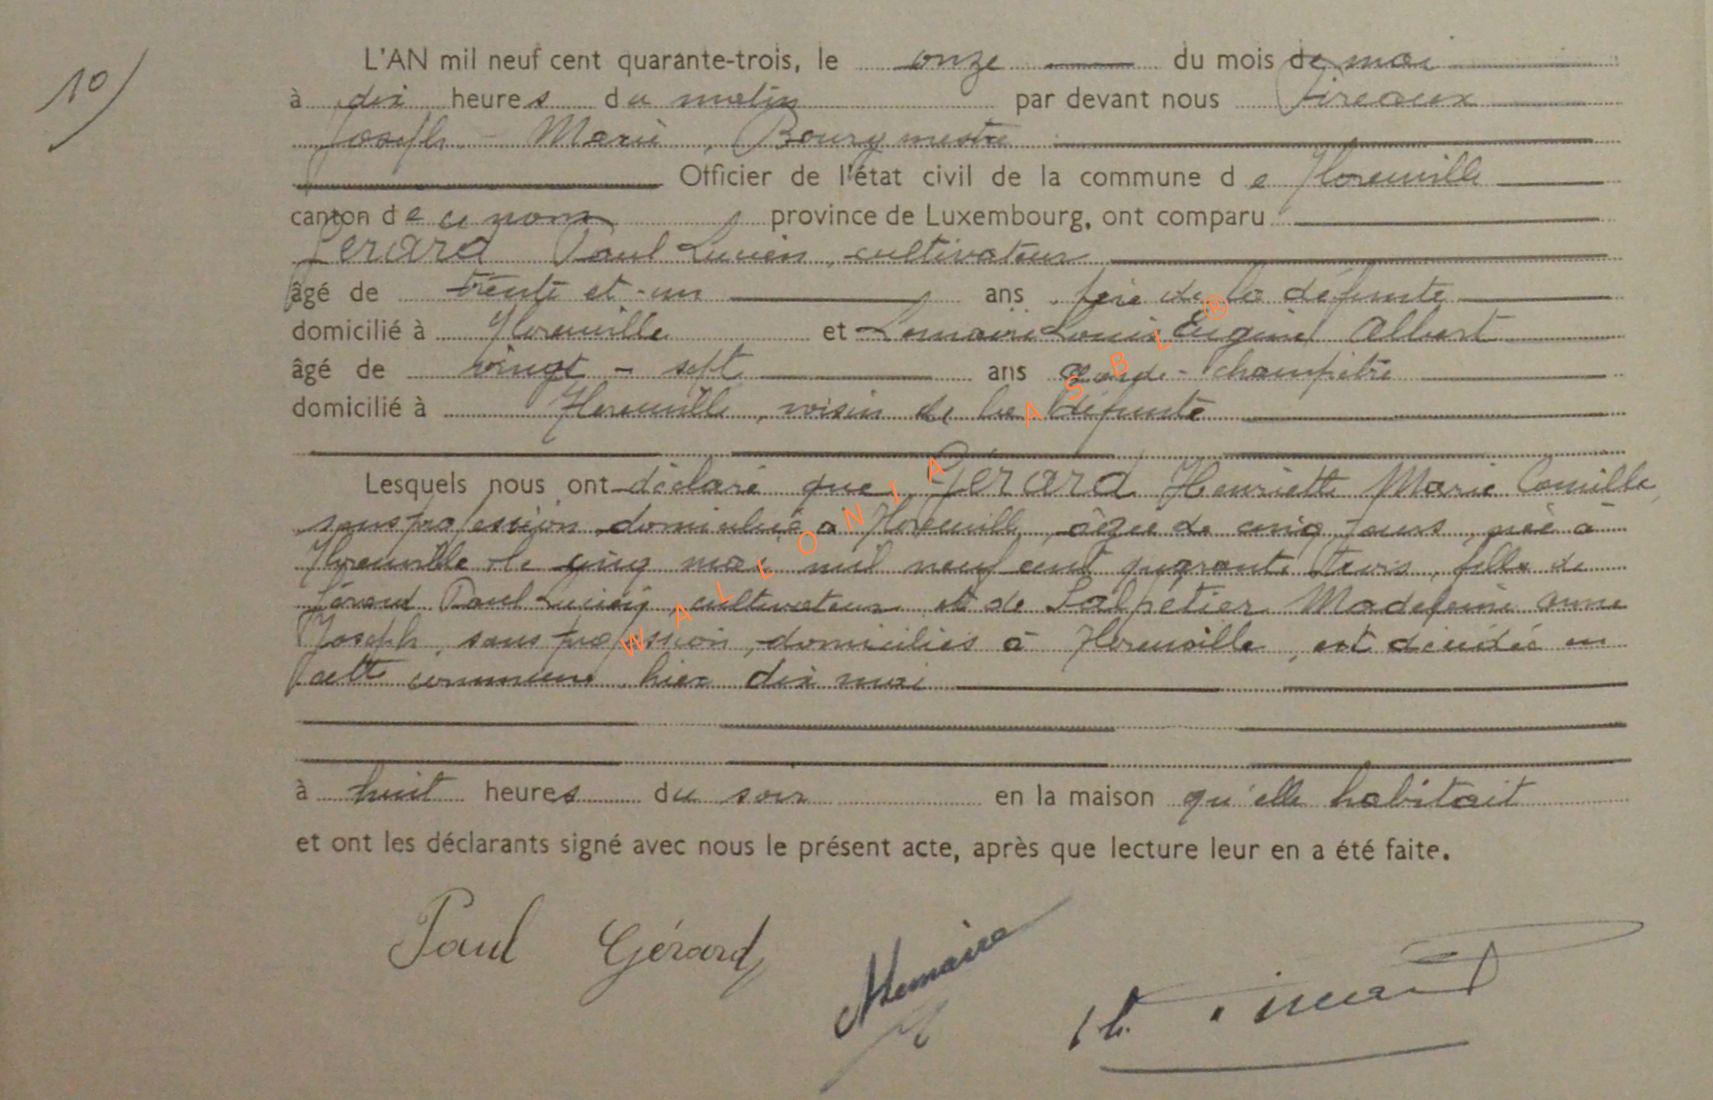 10)
L'AN mil neuf cent quarante-trois, le onze du mois de mai
à dix heures du matin par devant nous
Joseph - Marie, Bourgmestre
Officier de l'état civil de la commune de Florenville
canton de ce nom province de Luxembourg, ont comparu
Gérard Paul Lucien, cultivateur
âgé de trente et un ans, père de la défunte
domicilié à Florenville et Lemaire Louis Eugène Albert
âgé de vingt - sept ans garde-champêtre
domicilié à Florenville, voisin de la défunte
Lesquels nous ont déclaré que Gérard Henriette Marie Camille,
sans profession, domiciliée à Florenville, âgée de cinq jours, née à
Florenville le cinq mai mil neuf cent quarante trois, fille de
Gérard Paul Lucien, cultivateur et de Salpetier Madeleine Anne
Joseph, sans profession, domiciliés à Florenville, est décédée en
cette commune, hier dix mai
à huit heures du soir en la maison qu'elle habitait
et ont les déclarants signé avec nous le présent acte, après que lecture leur en a été faite.
Paul Gérard Lemaire
WALLONIA ASBL®